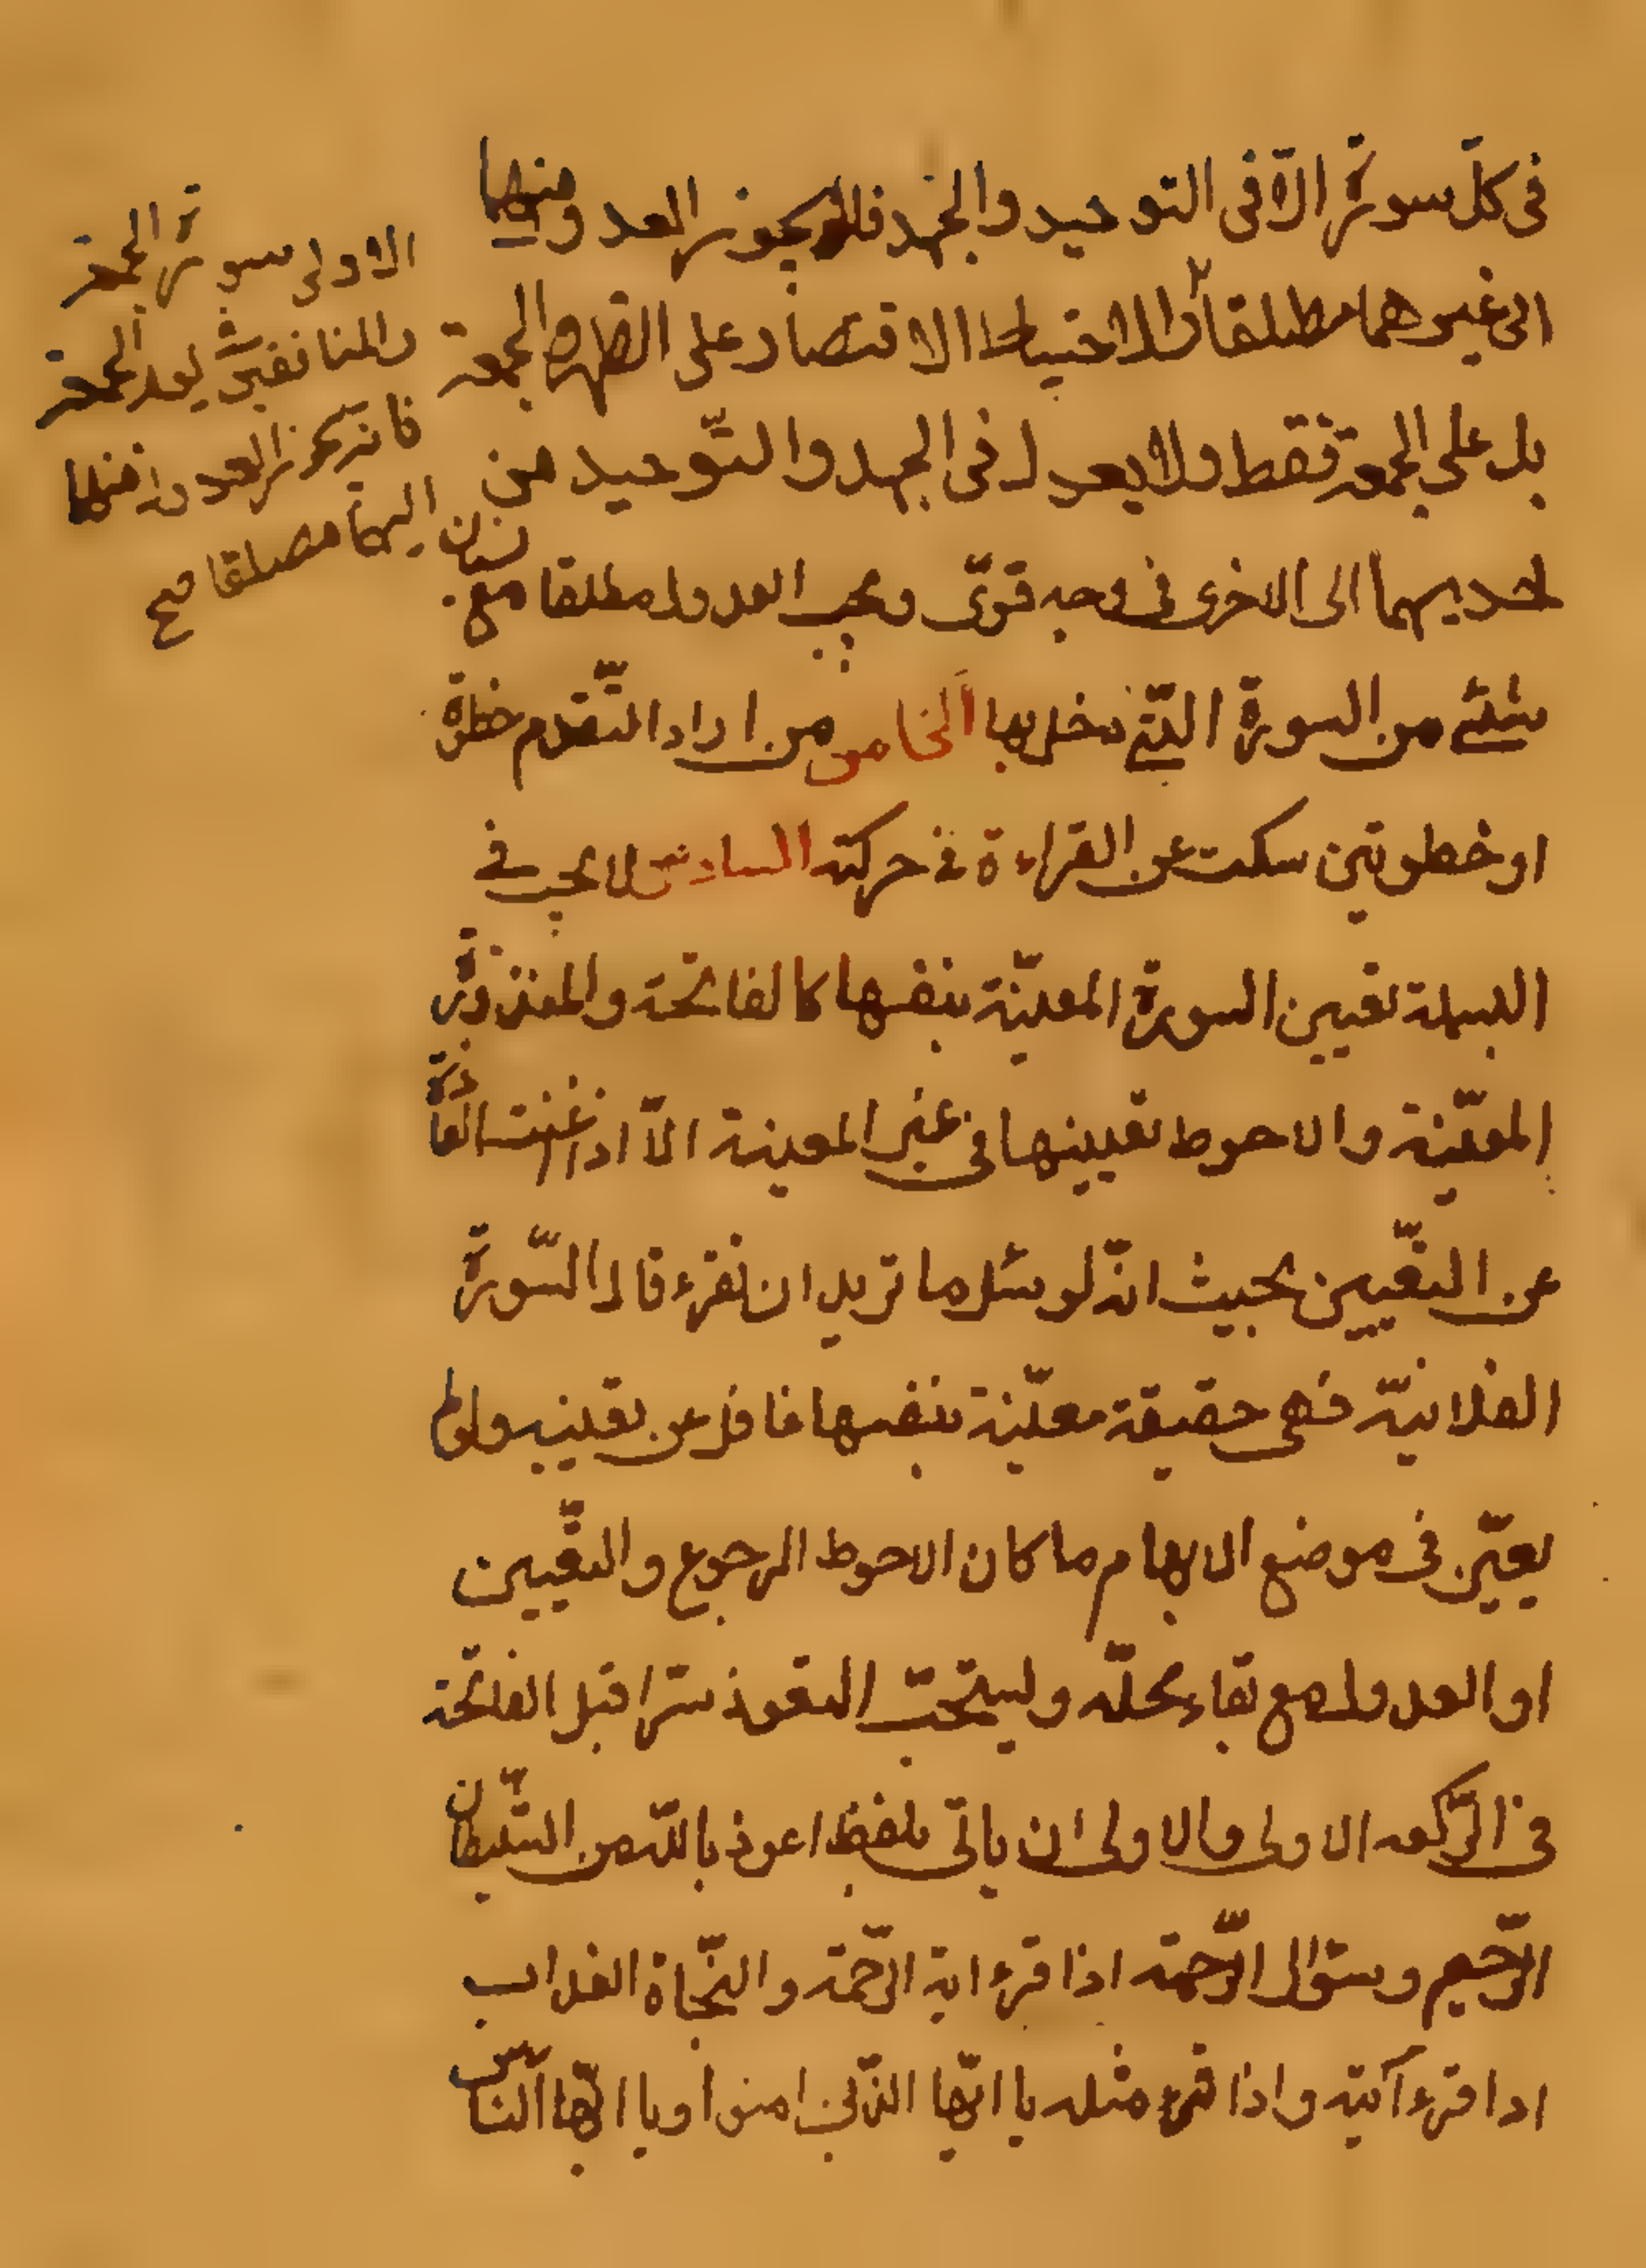 فى كلّ سورة الاّ فى التوحيد والجهد فلا يجوز العد ومنها
الى غيرهما مطلقا والاحتياط الاقتصار على الظهر والجمعة
بل على الجمعة فقط ولا يعدل فى الجهد والتّوحيد من
احديهما الى الاخرى فى وجه قوىّ ويجب العدول مطلقا مع
شئ من السورة الّتى دخل بها الخامس من اراد التّقدم خطوة
او خطوتين سكت عن القراءة فى حركته السادس لا يجب فى
البسملة تعيين السورة المعيّنة بنفسها كالفاتحة والمنذورة
المعيّنة والاحوط تعيينها فى غير المعينة الاّ اذا
عن التّعيين بحيث انّه لو سئل ما تريد ان تقرء قال السّورة
الفلانيّة فهى حقيقة معيّنة بنفسها غافل عن تعيينه ولو لم
يعيّن فى موضع الابهام ما كان الاحوط الرجوع والتّعيين
او العدول مع بقاء محلّه ويستحبّ التعوذ سرّا قبل الفاتحة
فى الرّكعه الاولى والاولى ان ياتى بلفظ اعوذ باللّه من الشّيطان
الرّحيم وسؤال الرّحمة اذا قرء اية الرّحمة والنّجاة العذاب
اذا قرء آيته واذا قرء مثله يا ايّها الذّين امنوا ويا ايّها النّاس
الاولى سورة الجمعة
والمنافقين يوم الجمعة
فانه يجوز العدول منهما
اليهما مطلقا صح